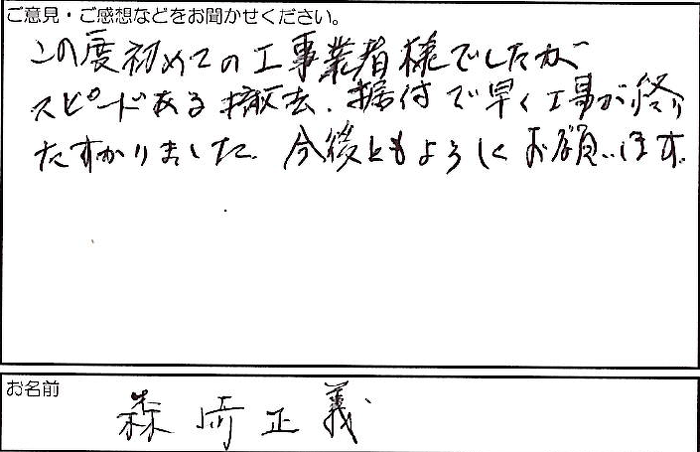 ご意見・ご感想などをお聞かせください。
この度初めての工事業者様でしたが
スピードある撤去、据付で早く工事が終り
たすかりました。今後ともよろしくお願いします。
お名前
森崎正義